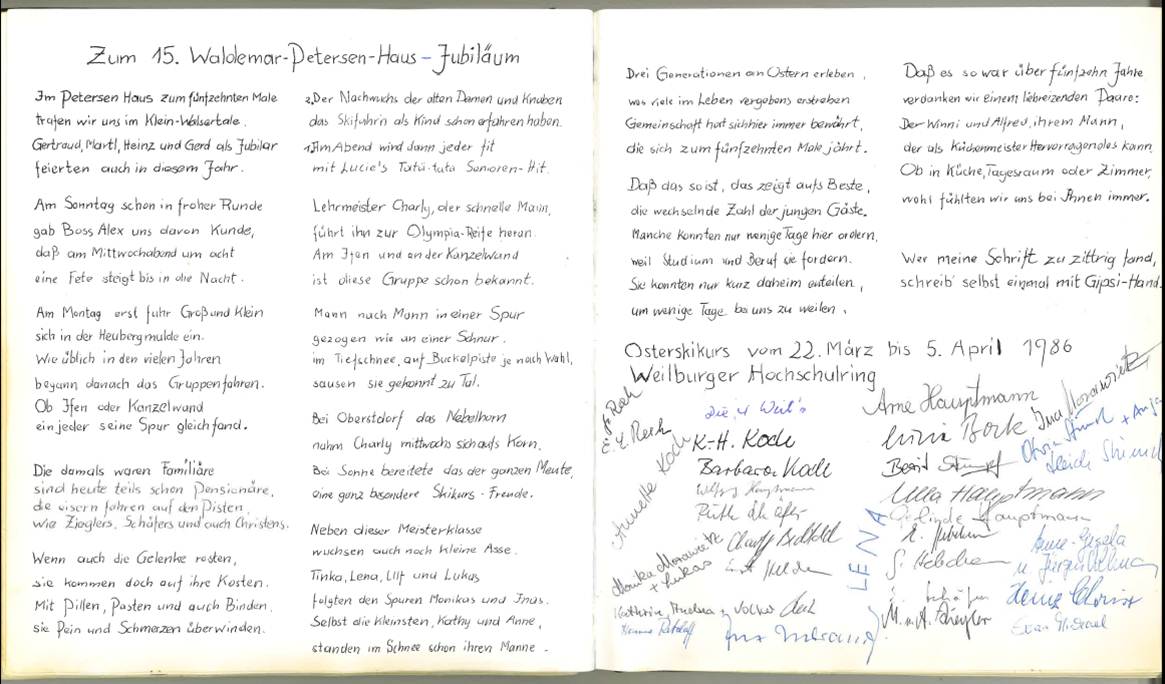 Zum 15. Waldemar-Petersen-Haus-Jubiläum
Im Petersen Haus zum fünfzehnten Male
trafen wir uns im Klein-Walsertale.
Gertraud, Martl, Heinz und Gerd als Jubilar
feierten auch in diesem Jahr.
Am Sonntag schon in froher Runde
gab Boss Alex uns davon Kunde,
daß am Mittwochabend um acht
eine Fete steigt bis in die Nacht.
Am Montag erst fuhr Groß und Klein
sich in der Heubergmulde ein.
Wie üblich in den vielen Jahren
begann danach das Gruppenfahren.
Ob Ifen oder Kanzelwand
ein jeder seine Spur gleich fand.
Die damals waren Familiäre
sind heute teils schon Pensionäre,
die eisern fahren auf den Pisten,
wie Zieglers, Schäfers und auch Christens.
Wenn auch die Gelenke rosten,
sie kommen doch auf ihre Kosten.
Mit Pillen, Pasten und auch Binden
sie Pein und Schmerzen überwinden.
2. Der Nachwuchs der alten Damen und Knaben
das Skifahr'n als Kind schon erfahren haben.
1. Am Abend wird dann jeder fit
mit Lucie's Tatü-tata Senioren-Hit.
Lehrmeister Charly, der schnelle Mann,
führt ihn zur Olympia-Reife heran.
Am Ifen und an der Kanzelwand
ist diese Gruppe schon bekannt.
Mann nach Mann in einer Spur
gezogen wie an einer Schnur.
im Tiefschnee, auf Buckelpiste je nach Wahl,
sausen sie gekonnt zu Tal.
Bei Oberstdorf das Nebelhorn
nahm Charly mittwochs sich aufs Korn.
Bei Sonne bereitete das der ganzen Meute,
eine ganz besondere Skikurs-Freude.
Neben dieser Meisterklasse
wuchsen auch noch kleine Asse.
Tinka, Lena, Ulf und Lukas
folgten den Spuren Monikas und Inas.
Selbst die Kleinsten, Kathy und Anne,
standen im Schnee schon ihren Manne.
Drei Generationen an Ostern erleben,
was viele im Leben vergebens erstreben
Gemeinschaft hat sich hier immer bewährt,
die sich zum fünfzehnten Male jährt.
Daß das so ist, das zeigt aufs Beste,
die wechselnde Zahl der jungen Gäste.
Manche konnten nur wenige Tage hier ordern,
weil Studium und Beruf sie fordern.
Sie konnten nur kurz daheim enteilen,
um wenige Tage bei uns zu weilen.
Daß es so war über fünfzehn Jahre
verdanken wir einem liebreizenden Paare:
Der Winni und Alfred, ihrem Mann,
der als Küchenmeister Hervorragendes kann.
Ob in Küche, Tagesraum oder Zimmer,
wohl fühlten wir uns bei Ihnen immer.
Wer meine Schrift zu zittrig fand,
schreib' selbst einmal mit Gips-Hand.
Osterskikurs vom 22. März bis 5. April 1986
Weilburger Hochschulring
Die 4 Weit's
K-H. Koch
Barbara Koch
Annette Koch
Monika Morawietz
+ Lukas
LENA
Arne Hauptmann
Ina Morawietz
Ulla Hauptmann
Gerlinde Hauptmann
M. u. A. Ziegler
Heinz Christ